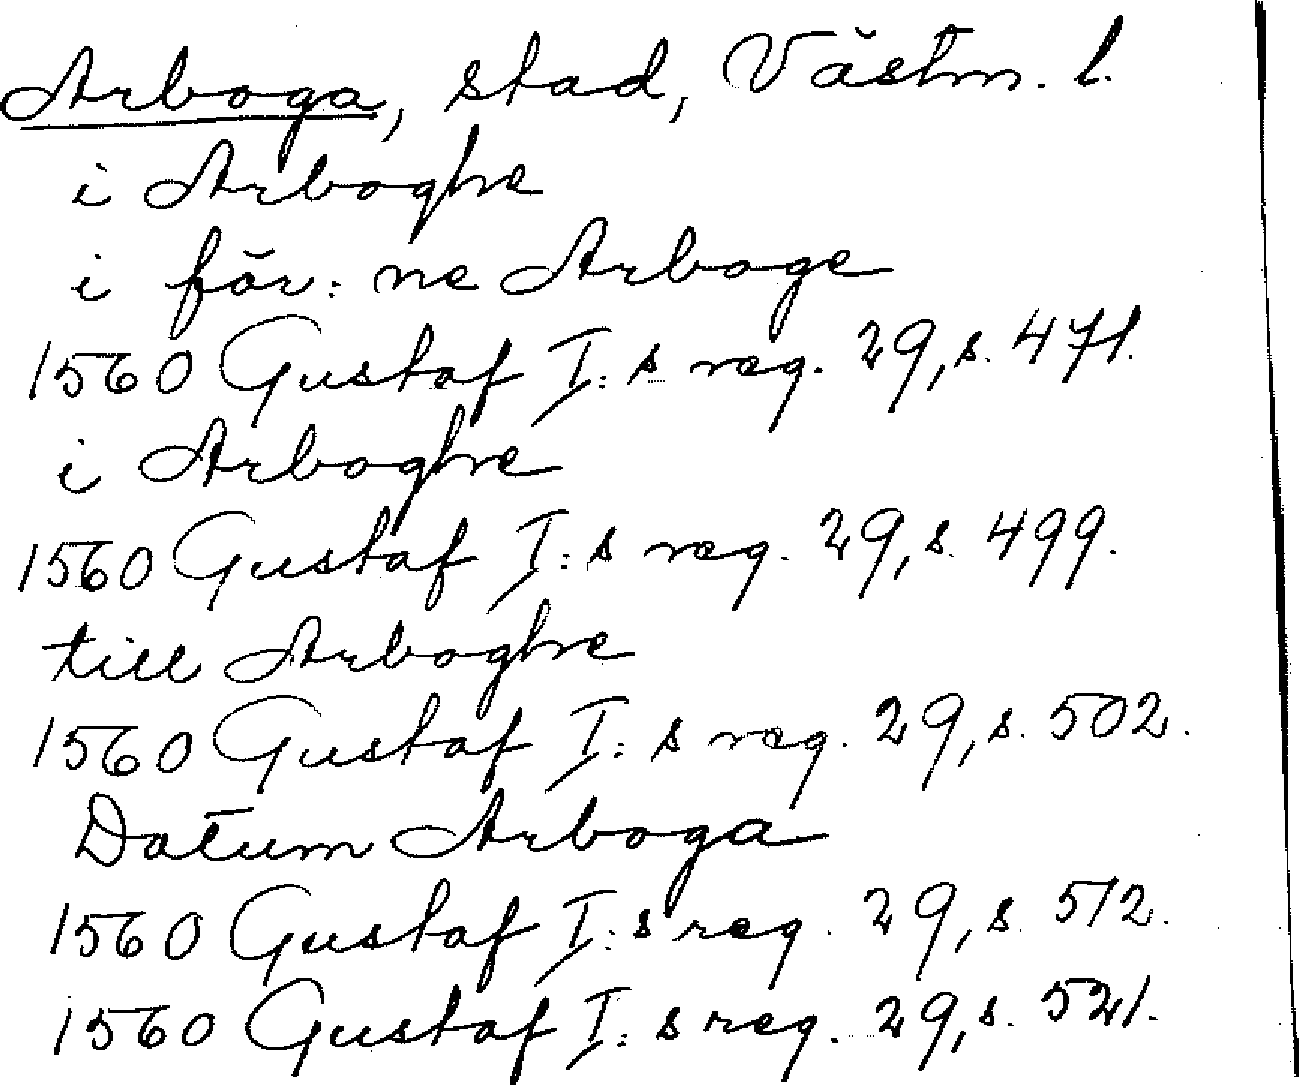 Arboga, stad, Västm. l.
i Arboghe
i för: ne Arboge
1560 Gustaf I: s reg. 29, s. 471.
i Arboghe
1560 Gustaf I: s reg. 29, s. 499.
till Arboghe
1560 Gustaf I: s reg. 29, s. 502.
Datum Arboga
1560 Gustaf I: s reg. 29, s. 512.
1560 Gustaf I: s reg. 29, s. 521.